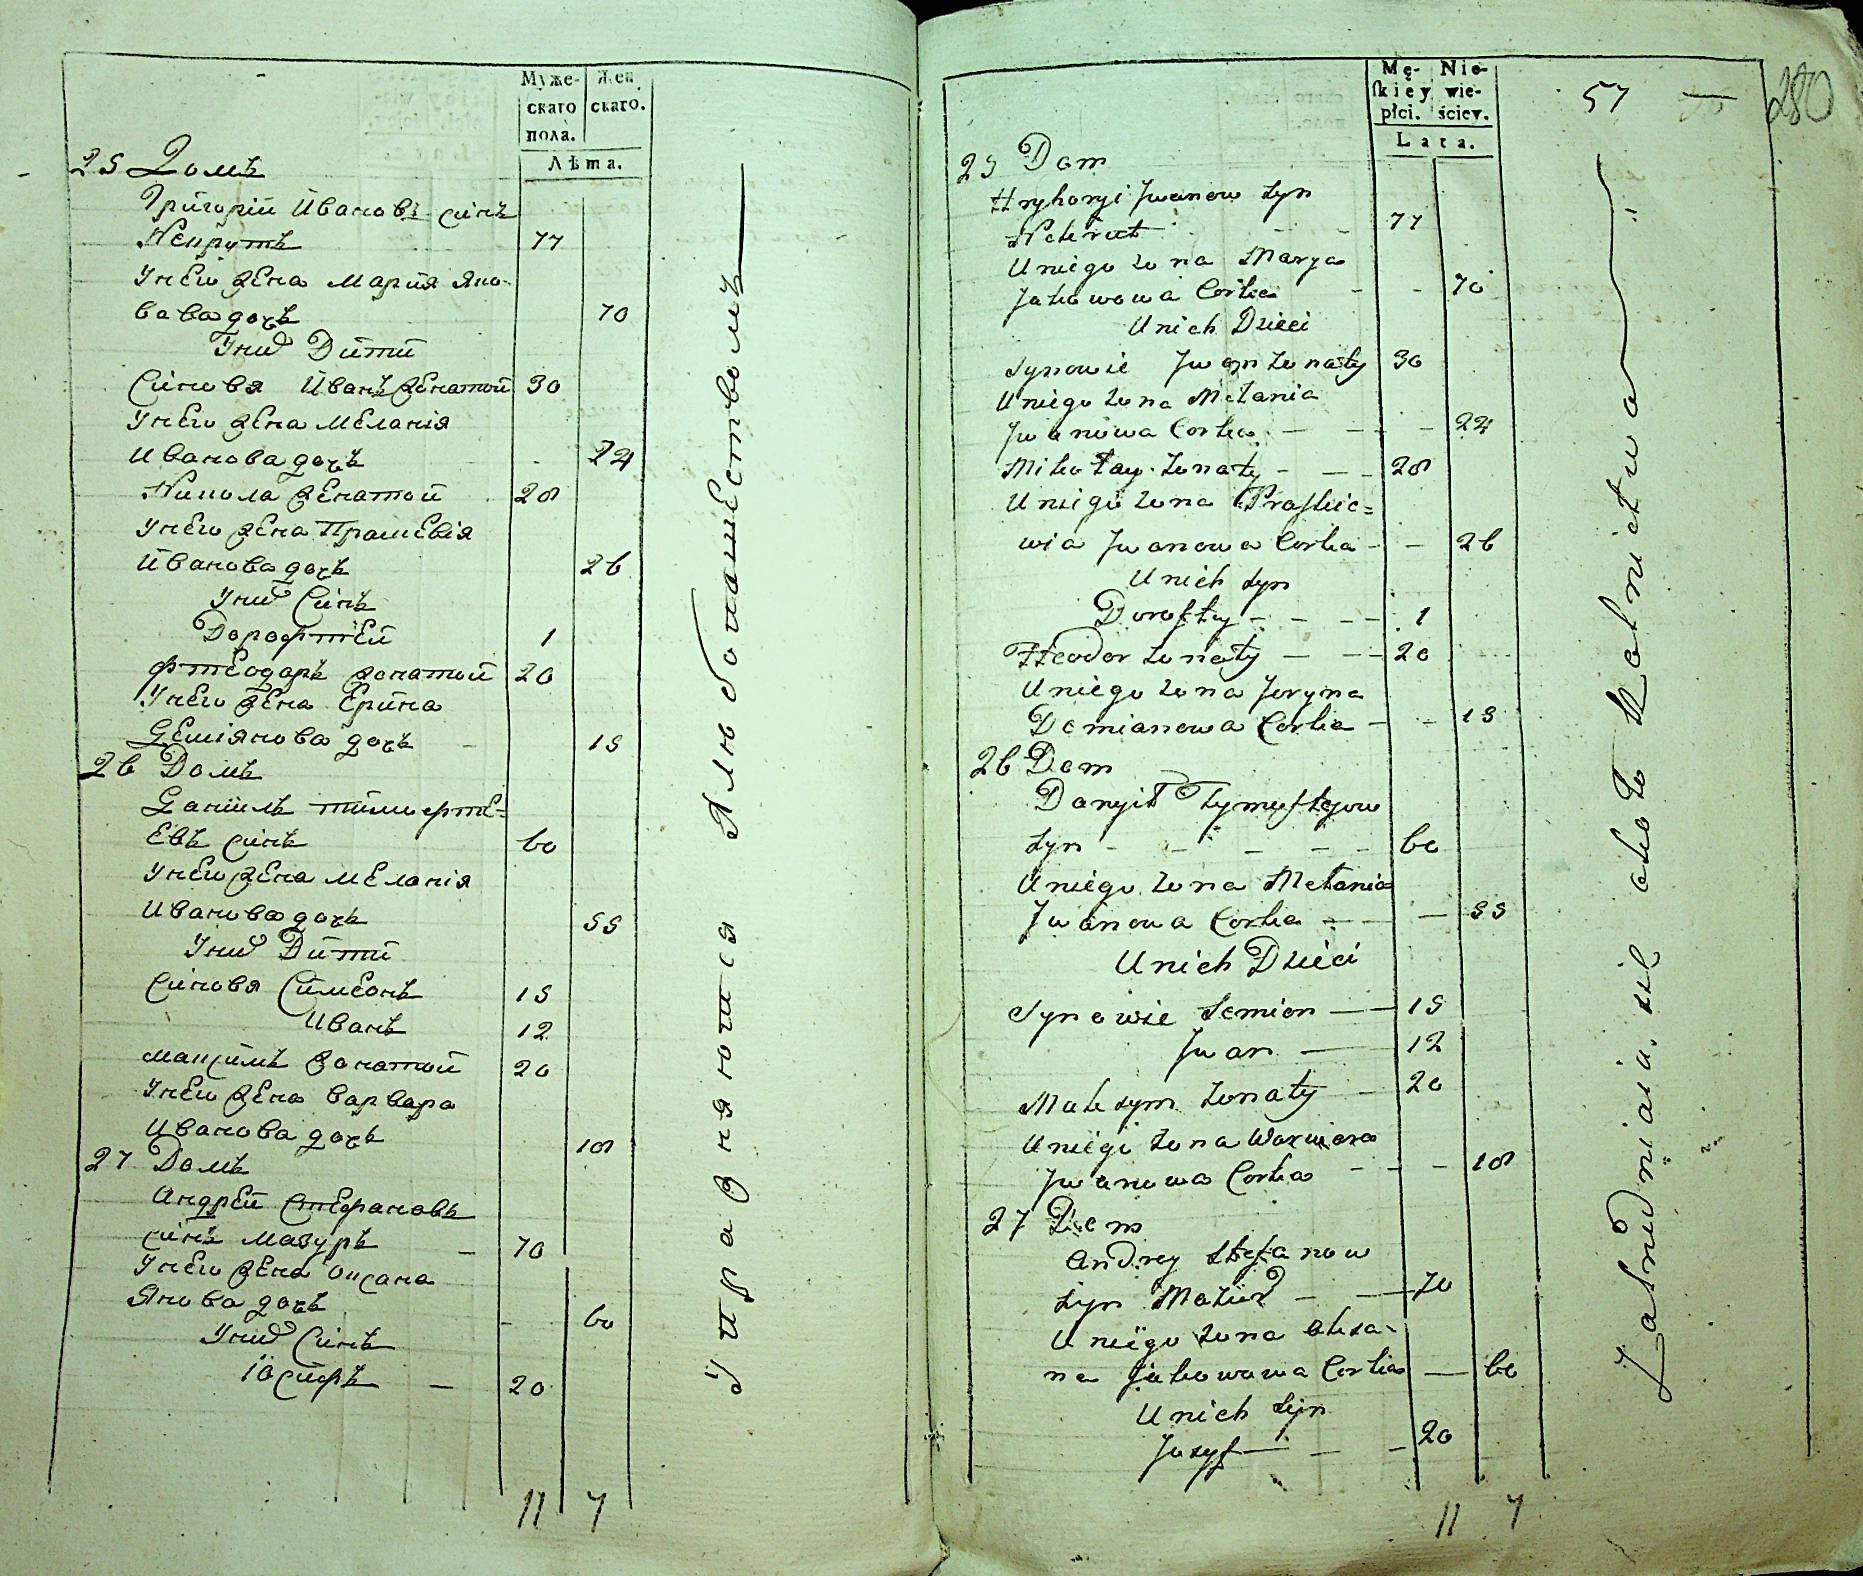 Муже-
скаго
пола.
Жен
скаго.
Лѣта.
25 Домъ
Григорий Ивановъ синъ
Некрутъ 77
Унего жена Мария Яко-
вова дочь 70
Уних Дити
Синовя Иванъ женатой 30
Унего жена Меланія
Иванова дочь 24
Никола женатой 28
Унего жена Прасковія
Иванова дочь 26
Уних Синъ
Дорофтей 1
Фтеодоръ женатой 20
Унего жена Ерина
Демiянова дочь 15
26 Домъ
Данiилъ тимофте-
евъ синъ 60
Унего жена Меланія
Иванова дочь 55
Уних Дити
Синовя Симеонъ 15
Иванъ 12
Максимъ женатой 20
Унего жена Варвара
Иванова дочь 18
27 Домъ
Андрей Стефановъ
синъ Мазуръ 70
Унего жена Оксана
Якова дочь 60
Уних Синъ
Iосифъ 20
11 7
Упражняются Хлебопашествомъ
Mę-
skiey
płci.
Nie-
wie-
ściey.
Lata.
57
280
25 Dom
Hryhoryi Jwanow Syn
Nekrut 77
U niego żona Marya
Jakowowa Corka 70
U nich Dzieci
Synowie Jwan żonaty 30
U niego żona Mełania
Jwanowa Corka 24
Mikołay żonaty 28
U niego żona Praskie=
wia Jwanowa Corka 26
U nich Syn
Doroftey 1
Fteodor żonaty 20
U niego żona Jeryna
Demianowa Corka 15
26 Dom
Danyił Tymoftejow
Syn 60
U niego żona Mełania
Jwanowa Corka 55
U nich Dzieci
Synowie Semion 15
Jwan 12
Maksym żonaty 20
U niego żona Warwara
Jwanowa Corka 18
27 Dom
Andrey Stefanow
Syn Mazur 70
U niego żona Oksa-
na Jakowowa Corka 60
U nich Syn
Josyf 20
11 7
Zatrudniaią się około Rolnictwa